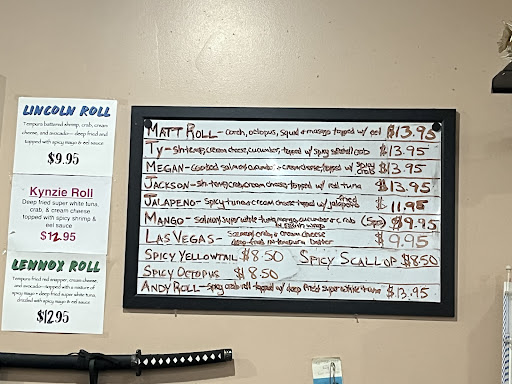 LINCOLN ROLL
Tempura battered shrimp, crab, cream
cheese, and avocado— deep fried and
topped with spicy mayo & eel sauce
$9.95
Kynzie Roll
Deep fried super white tuna,
crab, & cream cheese
topped with spicy shrimp &
eel sauce
$12.95
LENNOX ROLL
Tempura fried red snapper, cream cheese,
and avocado—topped with a mixture of
spicy mayo & deep fried super white tuna,
drizzled with spicy mayo & eel sauce
$12.95
MATT ROLL - conch, octopus, squid & masago topped w/ eel $13.95
TY - sh-temp, cream cheese, cucumber, topped w/ spicy crab $13.95
MEGAN - cooked salmon, cucumber & cream cheese, topped w/ spicy crab $13.95
JACKSON - sh-temp, crab, cream cheese - topped w/ red tuna $13.95
JALAPENO - spicy tuna & cream cheese - topped w/ fried jalapeños $11.95
MANGO - salmon, super white tuna, mango, cucumber & crab (5pcs) $9.95
LAS VEGAS - salmon, crab, & cream cheese $9.95
deep-fried in tempura batter
SPICY YELLOWTAIL $8.50 SPICY SCALLOP $8.50
SPICY OCTOPUS $8.50
ANDY ROLL - spicy crab roll - topped w/ deep fried super white tuna $13.95